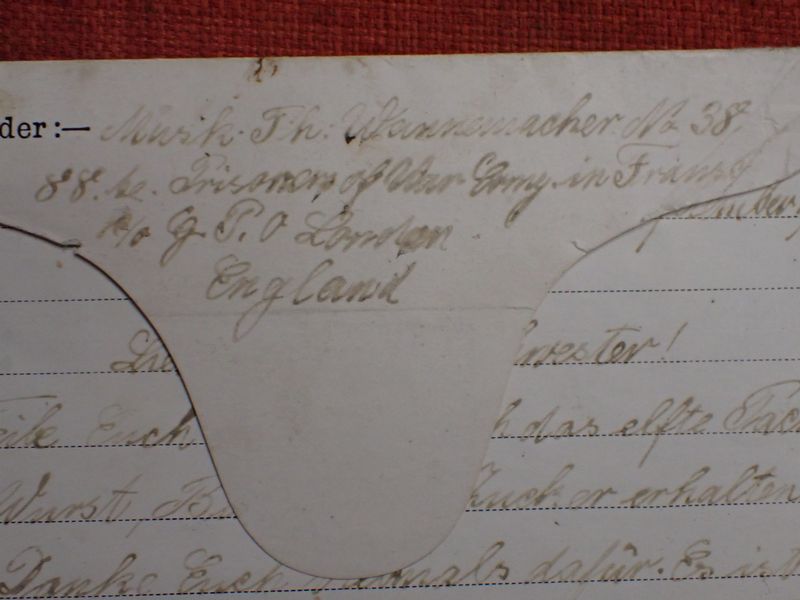 der:— Musik. Th. Wannemacher No 38.
88. Prisoners of War Comy. in France
c/o G. P. O London
England
Lie hwester!
eile Euch h das elfte
Wurst, Zucker erhalten
Danke Euch mals dafür. Es ist